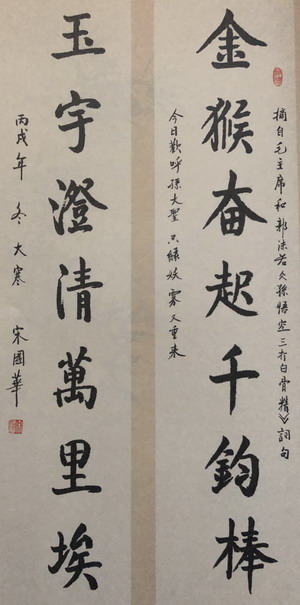 摘自毛主席和郭沫若《孫悟空三打白骨精》詞句
金猴奋起千鈞棒
今日歡呼孫大聖 只緣妖霧又重来
玉宇澄清萬里埃
丙戌年 冬 大寒 宋國華